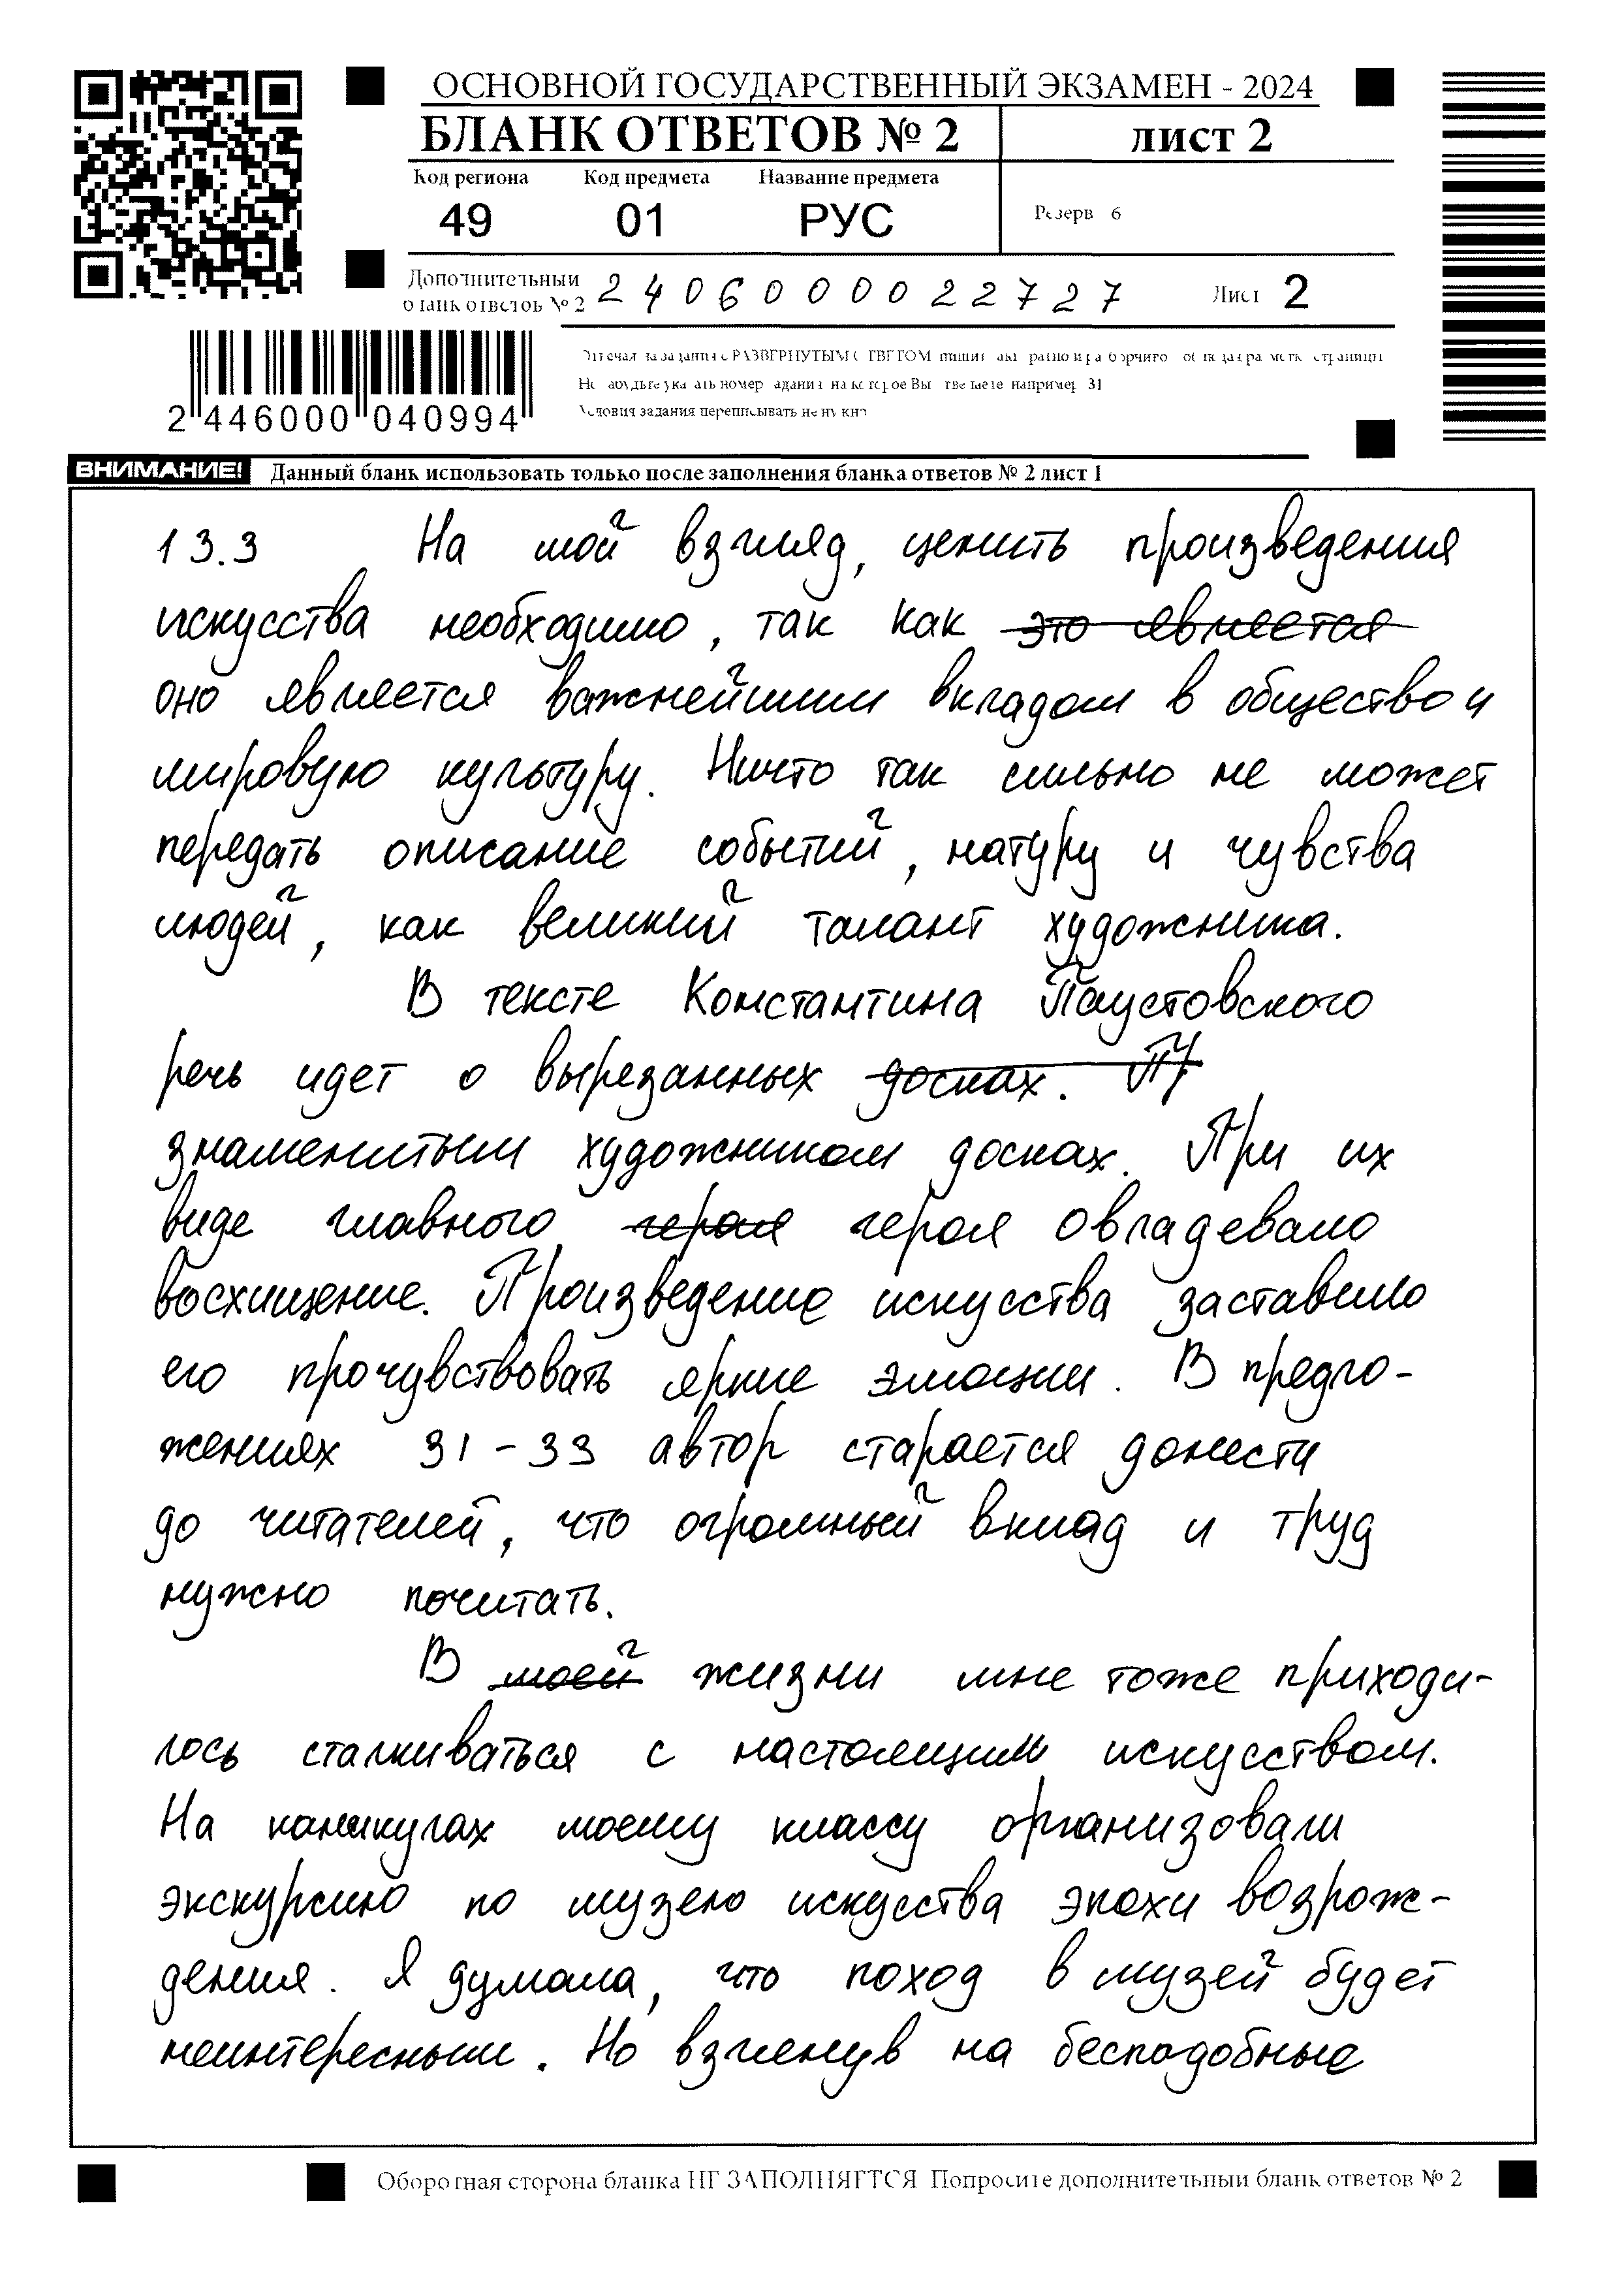 ОСНОВНОЙ ГОСУДАРСТВЕННЫЙ ЭКЗАМЕН - 2024
БЛАНК ОТВЕТОВ № 2
ЛИСТ 2
Код региона Код предмета Название предмета
49 01 РУС
Резерв 6
Дополнительный
бланк ответов № 2
2406000022727
Лист 2
2 446000 040994
Условия задания переписывать не нужно
ВНИМАНИЕ! Данный бланк использовать только после заполнения бланка ответов № 2 лист 1
13.3 На мой взгляд, ценить произведения
искусства необходимо, так как это является
оно является важнейшим вкладом в общество и
мировую культуру. Ничто так сильно не может
передать описание событий, натуру и чувства
людей, как великий талант художника.
В тексте Константина Паустовского
речь идет о вырезанных досках. Пр
знаменитым художником досках. При их
виде главного героя героя овладевало
восхищение. Произведение искусства заставило
его прочувствовать яркие эмоции. В предло-
жениях 31-33 автор старается донести
до читателей, что огромный вклад и труд
нужно почитать.
В моей жизни мне тоже приходи-
лось сталкиваться с настоящим искусством.
На каникулах моему классу организовали
экскурсию по музею искусства эпохи возрож-
дения. Я думала, что поход в музей будет
неинтересным. Но взглянув на бесподобные
Оборотная сторона бланка НЕ ЗАПОЛНЯЕТСЯ Попросите дополнительный бланк ответов № 2